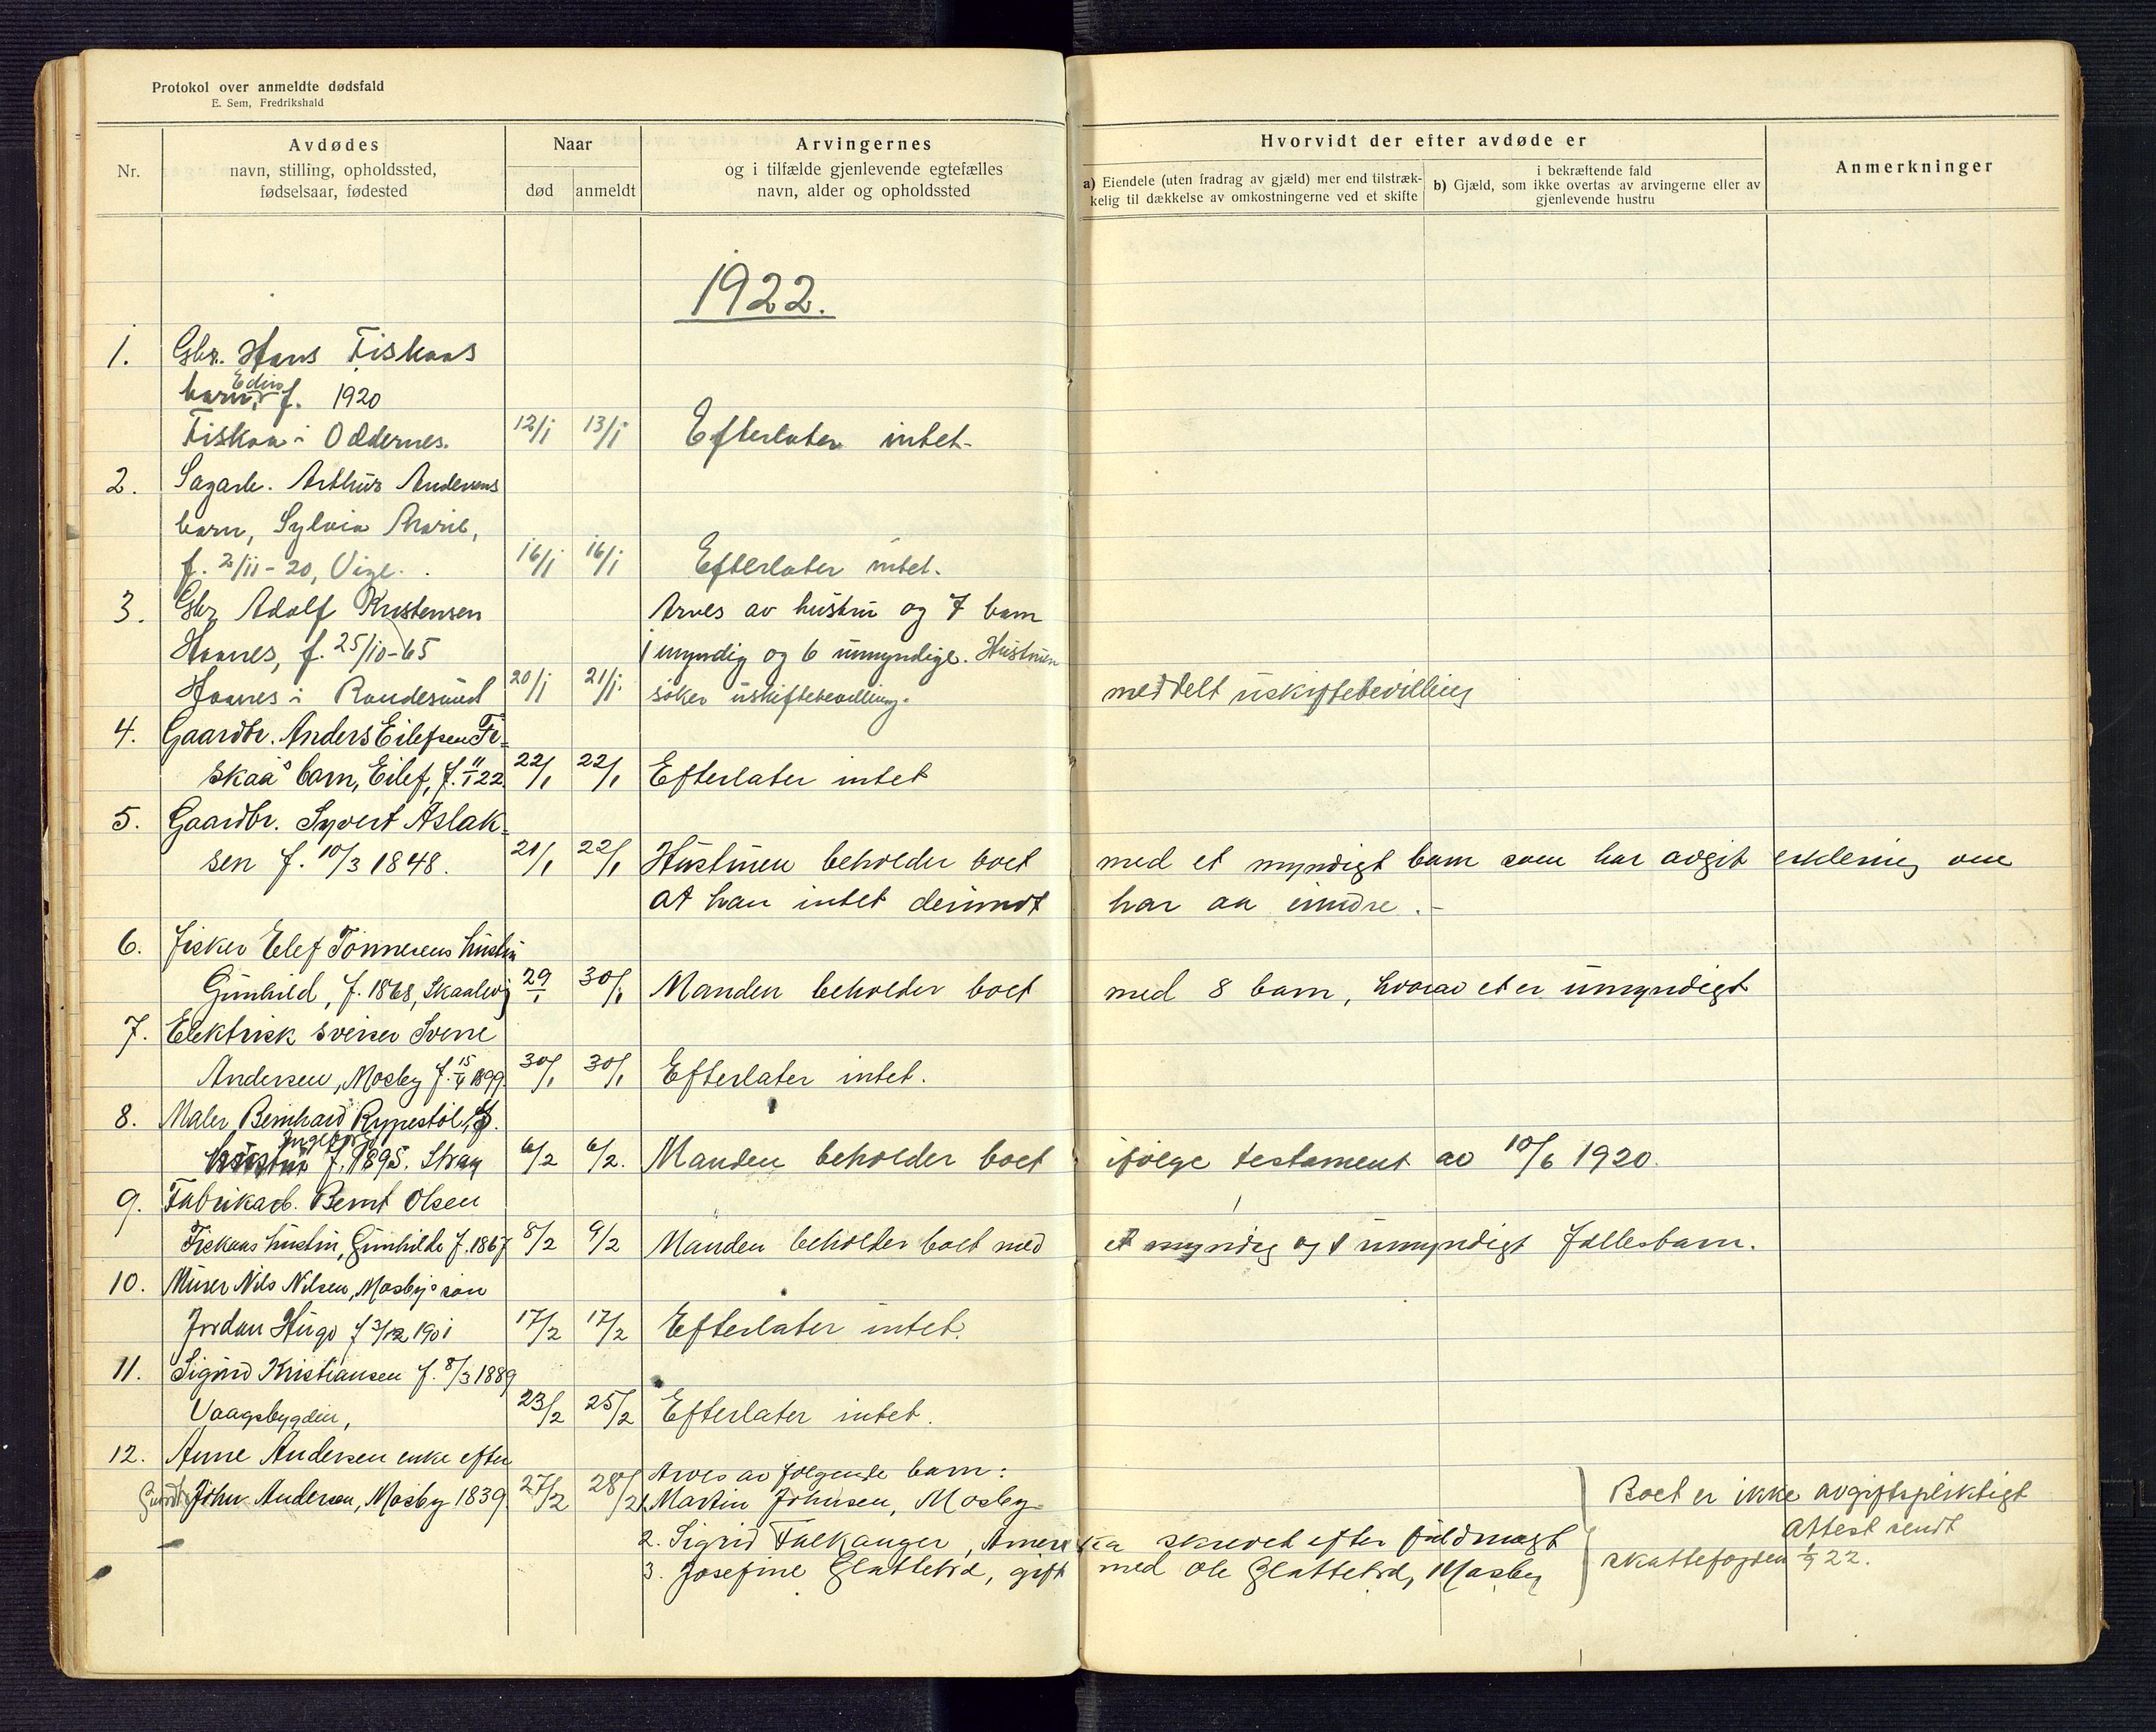 Protokol over anmeldte dødsfald
E. Sem, Fredrikshald
Nr.
Avdødes
navn, stilling, opholdssted,
fødselsaar, fødested
Naar
død
anmeldt
Arvingernes
og i tilfælde gjenlevende egtefælles
navn, alder og opholdssted
Hvorvidt der efter avdøde er
a) Eiendele (uten fradrag av gjæld) mer end tilstræk-
kelig til dækkelse av omkostningerne ved et skifte
i bekræftende fald
b) Gjæld, som ikke overtas av arvingerne eller av
gjenlevende hustru
Anmerkninger
1922.
1. Gbr. Hans Fiskaas
barn, f. 1920
Fiskaa i Oddernes. 12/1 13/1 Efterlater intet.
2. Sagarb. Arthur Andersens
barn, Sylvia Marie,
f. 2/11-20, Vige. 16/1 16/1 Efterlater intet.
3. Gbr Adolf Kristensen Arves av hustru og 7 barn
Haanes, f. 25/10-65 1 myndig og 6 umyndige. Hustruen
Haanes i Randesund 20/1 21/1. søker uskiftebevilling. meddelt uskiftebevilling
4. Gaardbr. Anders Eilefsen Fi-
skaa's barn, Eilef, f. 11/1 22 22/1 22/1 Efterlater intet
5. Gaardbr. Syvert Aslak-
sen f. 10/3 1848. 21/1 22/1 Hustruen beholder boet med et myndigt barn som har avgit erklering om
at han intet derimot har aa indre.-
6. Fisker Elef Tønnesens hustru
Gunhild, f. 1868, Skaalevig 29/1 30/1 Manden beholder boet med 8 barn, hvorav et er umyndigt
7. Elektrisk sveiser Sverre
Andersen, Mosby f. 15/4 1899. 30/1 30/1 Efterlater intet.
8. Maler Bernhard Rypestøl,s
hustru Ingeborg f. 1895. Stray 6/2 6/2. Manden beholder boet ifølge testament av 10/6 1920.
9. Fabrikarb. Bernt Olsen
Fiskaas hustru, Gunhilde f. 1867 8/2 9/2 Manden beholder boet med et myndig og 1 umyndigt fellesbarn.
10. Murer Nils Nilsen, Mosby's søn
Jordan Hugo f 3/12 1901 17/2 17/2 Efterlater intet.
11. Sigurd Kristiansen f. 8/3 1889
Vaagsbygden, 23/2 25/2 Efterlater intet.
12. Anne Andersen enke efter Arves av følgende barn:
John Andersen, Mosby 1839. 27/2 28/2 1. Martin Johnsen, Mosby Boet er ikke avgiftspliktigt
2. Sigrid Falkanger, Amerika skrevet efter fuldmagt Attest sendt
3. Josefine Glattetrd, gift med Ole Glattetrd, Mosby skattefogden 1/9 22.